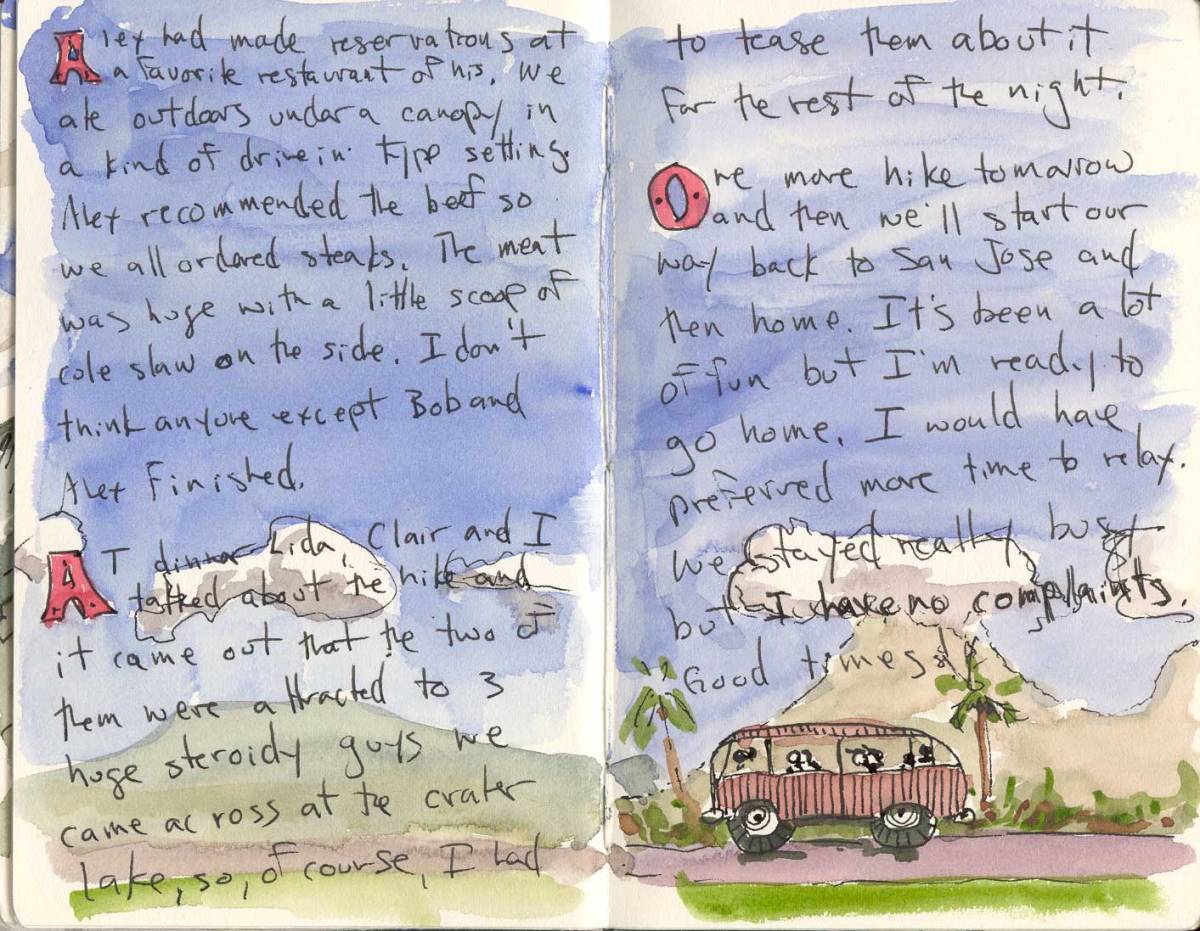 Alex had made reservations at
a favorite restaurant of his. We
ate outdoors under a canopy in
a kind of drive in type setting.
Alex recommended the beef so
we all ordered steaks. The meat
was huge with a little scoop of
cole slaw on the side. I don't
think anyone except Bob and
Alex finished.
AT dinner Lida, Clair and I
talked about the hike and
it came out that the two of
them were attracted to 3
huge steroidy guys we
came across at the crater
lake, so, of course, I had
to tease them about it
for the rest of the night.
One more hike tomorrow
and then we'll start our
way back to San Jose and
then home. It's been a lot
of fun but I'm ready to
go home. I would have
preferred more time to relax.
We stayed really busy
but I have no complaints.
Good times!